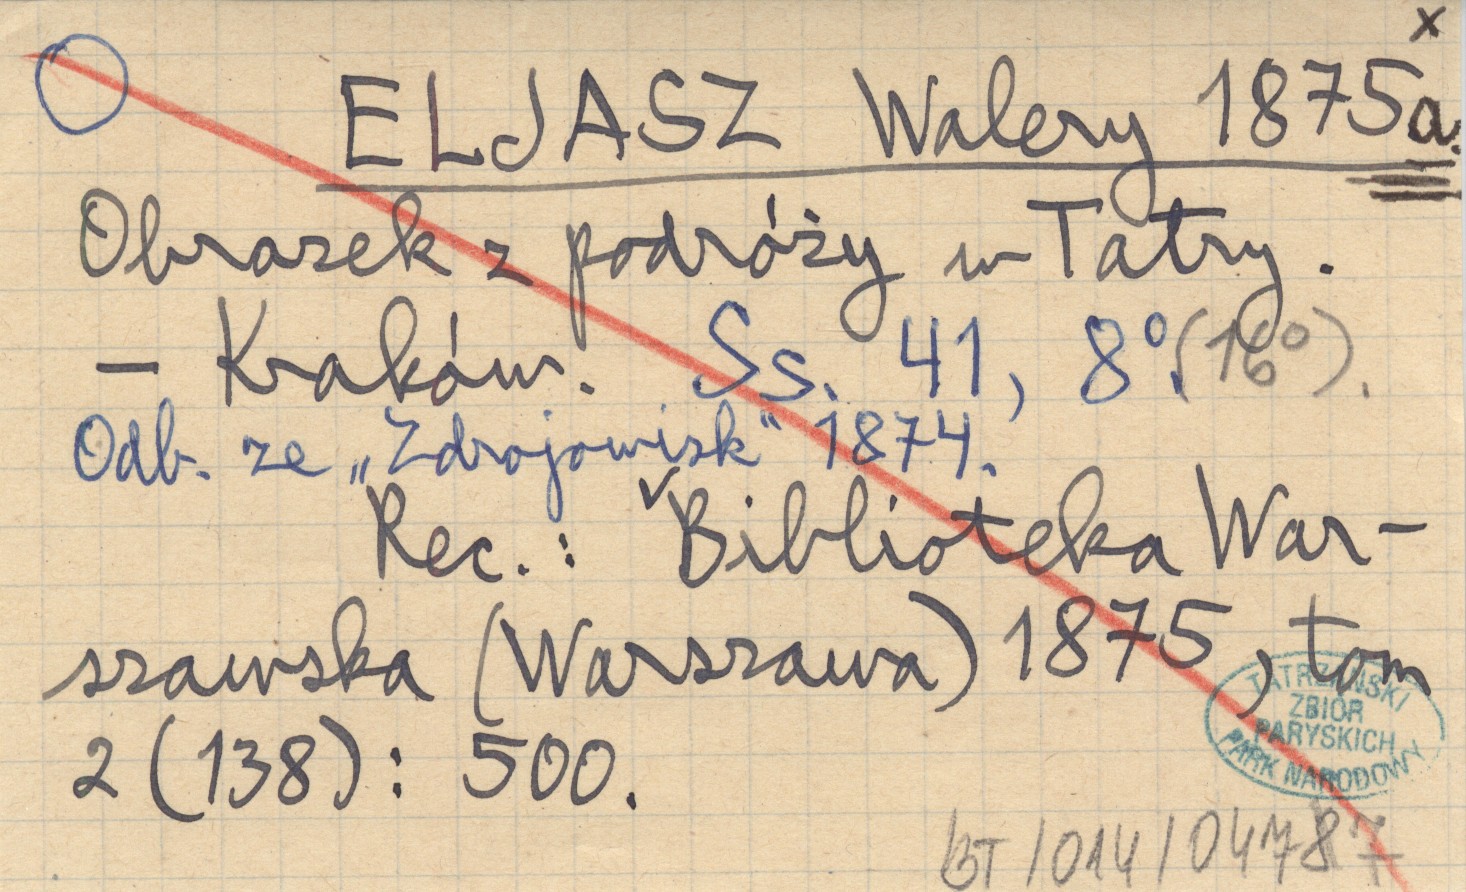 x
ELJASZ Walery 1875a.
Obrazek z podróży w Tatry.
— Kraków. Ss. 41, 8°. (16°).
Odb. ze „Zdrojowisk" 1874.
Rec.: Biblioteka War-
szawska (Warszawa) 1875, tom
2 (138): 500.
TATRZAŃSKI
ZBIÓR
PARYSKICH
PARK NARODOWY
BT/014/0478